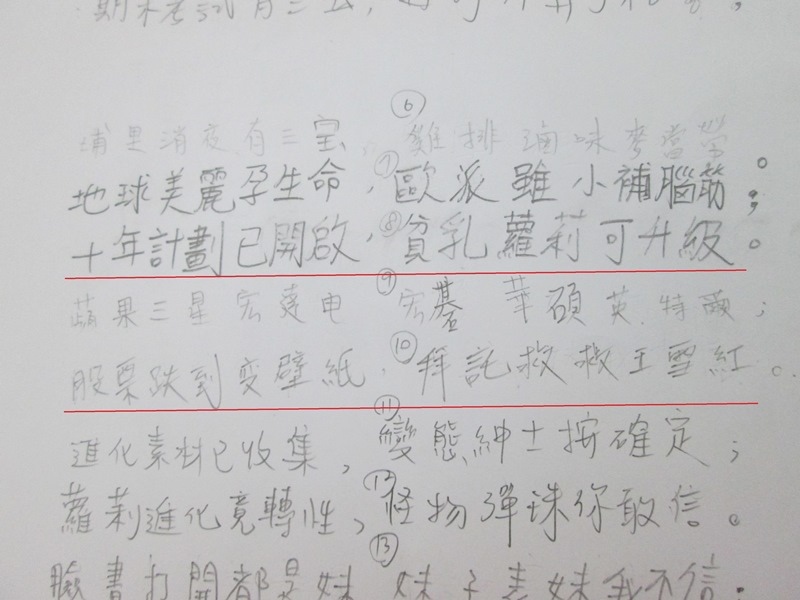 期末考試有三
⑥
埔里消夜有三宝，雞排滷味麥當勞。
⑦
地球美麗孕生命，歐派雖小補腦筋；
⑧
十年計劃已開啟，貧乳蘿莉可升級。
⑨
蘋果三星宏達电 宏碁 華碩英特爾；
⑩
股票跌到变壁紙 拜託救救王雪紅。
⑪
進化素材已收集，變態紳士按確定；
⑫
蘿莉進化竟轉性，怪物彈珠你敢信。
⑬
臉書打開都是妹 妹子表妹我不信；